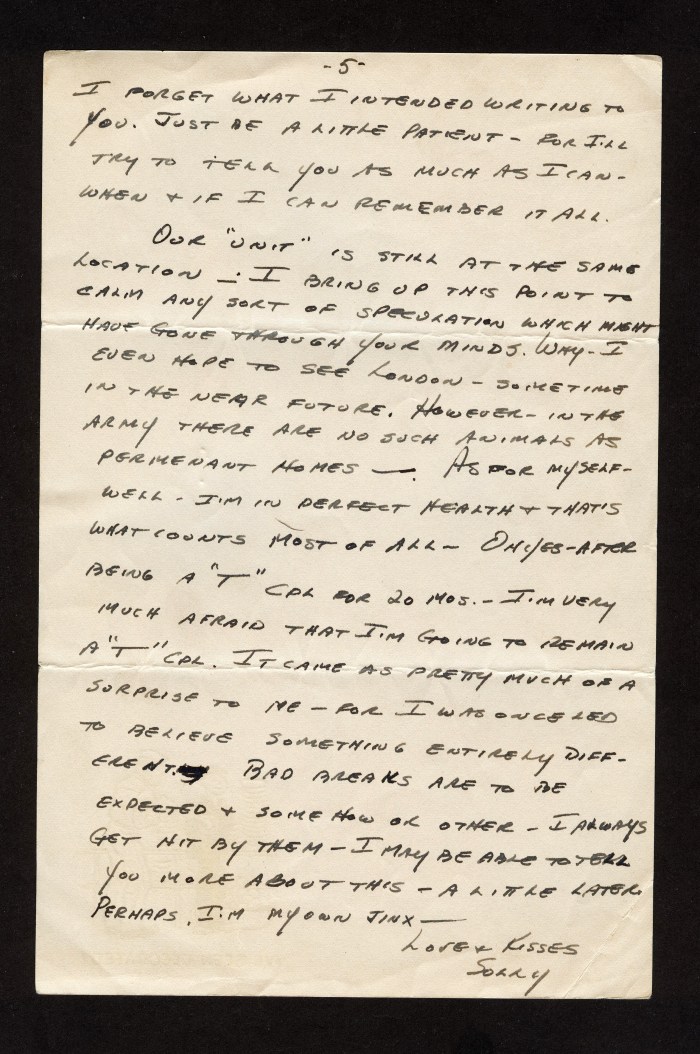 -5-
I FORGET WHAT I INTENDED WRITING TO
YOU. JUST BE A LITTLE PATIENT - FOR I'LL
TRY TO TELL YOU AS MUCH AS I CAN -
WHEN + IF I CAN REMEMBER IT ALL.
OUR "UNIT" IS STILL AT THE SAME
LOCATION —. I BRING UP THIS POINT TO
CALM ANY SORT OF SPECULATION WHICH MIGHT
HAVE GONE THROUGH YOUR MINDS. WHY - I
EVEN HOPE TO SEE LONDON - SOMETIME
IN THE NEAR FUTURE. HOWEVER - IN THE
ARMY THERE ARE NO SUCH ANIMALS AS
PERMENANT HOMES —. AS FOR MYSELF -
WELL - I'M IN PERFECT HEALTH + THAT'S
WHAT COUNTS MOST OF ALL - OH YES - AFTER
BEING A "T" CPL FOR 20 MOS. - I'M VERY
MUCH AFRAID THAT I'M GOING TO REMAIN
A "T" CPL. IT CAME AS PRETTY MUCH OF A
SURPRISE TO ME - FOR I WAS ONCE LED
TO BELIEVE SOMETHING ENTIRELY DIFF-
ERENT. BAD BREAKS ARE TO BE
EXPECTED + SOME HOW OR OTHER - I ALWAYS
GET HIT BY THEM - I MAY BE ABLE TO TELL
YOU MORE ABOUT THIS - A LITTLE LATER.
PERHAPS, I'M MY OWN JINX —
LOVE + KISSES
SOLLY